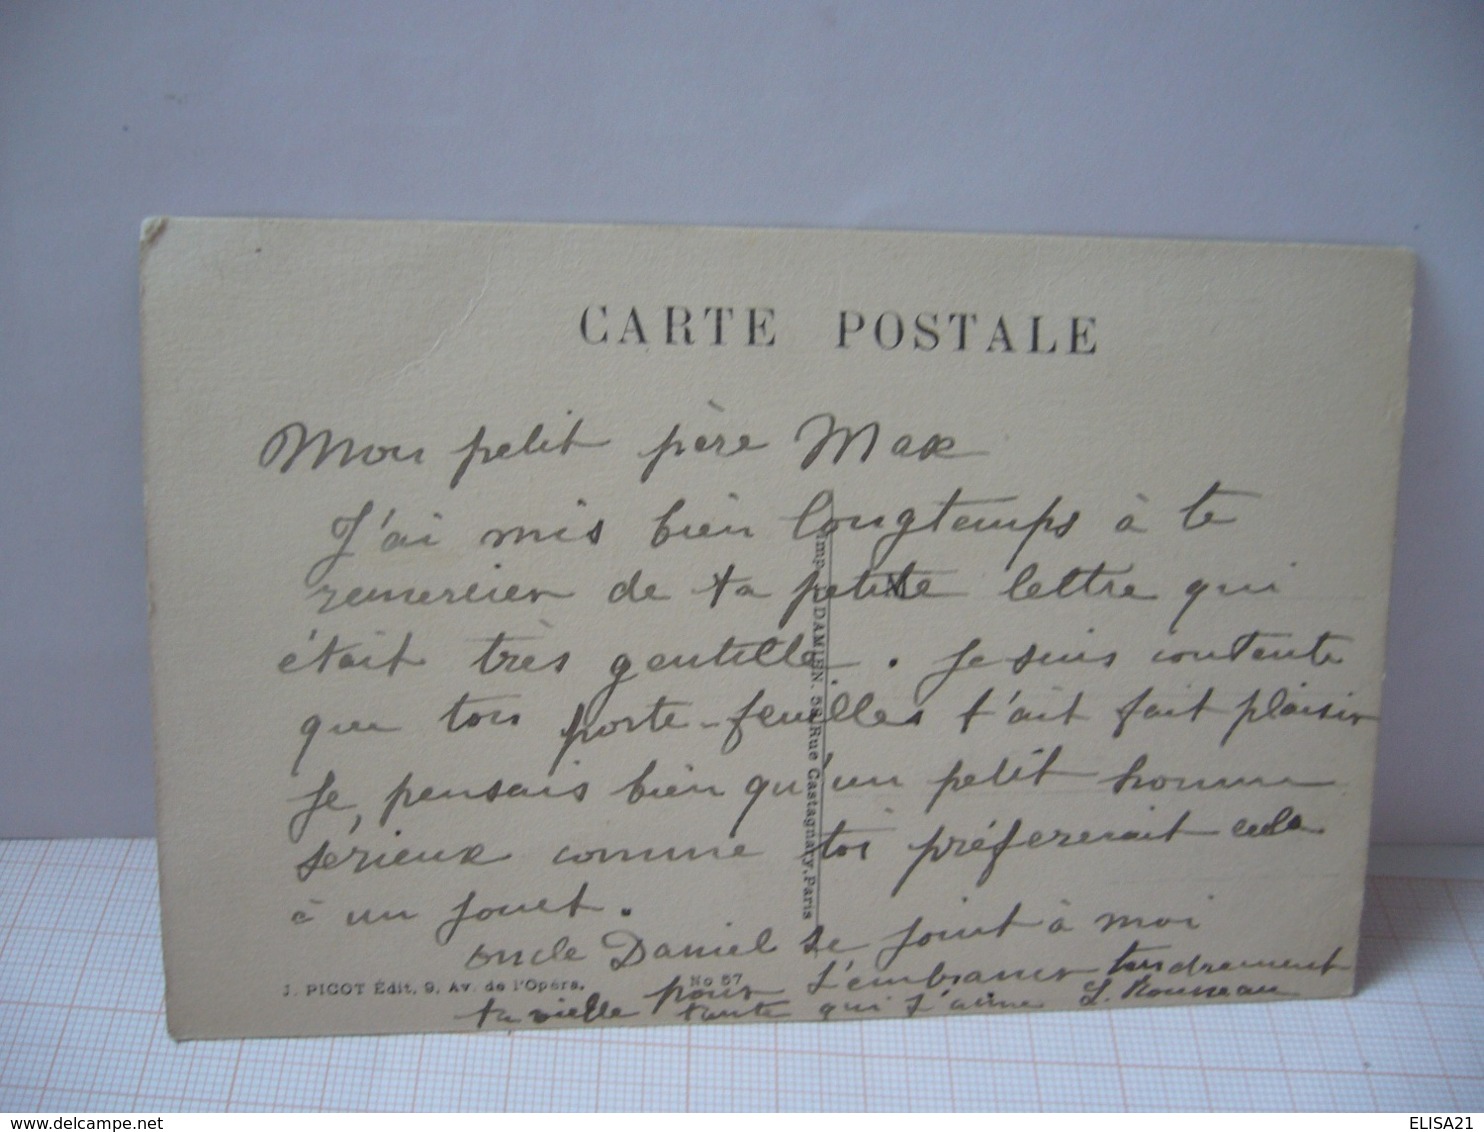 CARTE POSTALE
Mon petit père Max
J'ai mis bien longtemps à te
remercier de ta petite lettre qui
était très gentille. Je suis contente
que ton porte-feuilles t'ait fait plaisir
Je pensais bien qu'un petit homme
sérieux comme toi préfererait cela
à un jouet.
oncle Daniel se joint à moi
pour t'embrasser tendrement
ta vieille tante qui t'aime L. Rousseau
J. PICOT Édit. 9, Av. de l'Opéra.
No 57
Imp. DAMIEN. 58, Rue Castagnary, Paris
ELISA21